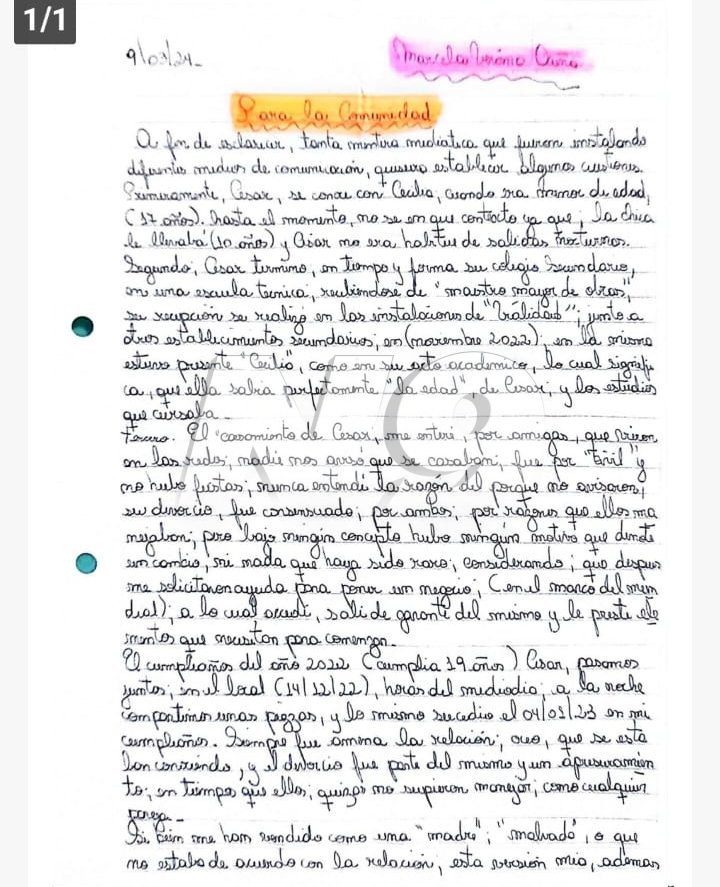 1/1
9/03/24-
Marcela Verónica Acuña
Para la Comunidad
A fin de esclarecer, tanta mentira mediatica que fueron instalando
diferentes medios de comunicación, quisiera establecer algunas cuestiones.
Primeramente, Cesar, se conoce con Cecilia, cuando era menor de edad,
(17 años). hasta el momento, no se en que contexto ya que, la chica
le llevaba (10 años) y Cesar no era habitue de salidas nocturnas.
Segundo, Cesar termino, en tiempo y forma su colegio Secundario,
en una escuela tecnica, recibiendose de "maestro mayor de obras",
su recepción se realizo en las instalaciones de "Gralidad"; junto a
otros establecimientos secundarios, en (noviembre 2022), en la misma
estuvo presente "Cecilia", como en su acto academico, lo cual signifi
ca, que ella sabia perfectamente "la edad" de Cesar, y los estudios
que cursaba-
Tercero. El "casamiento de Cesar, me enteré, por amigas, que vieron
en las redes, nadie nos avisó que se casaban, fue por "civil" y
no hubo fiestas; nunca entendí la razón del porque no avisaron,
su divorcio, fue consensuado; por ambos; por razones que ellos ma
nejaban; pero bajo ningún concepto hubo ningun motivo que denote
un cambio, ni nada que haya sido raro; considerando; que despues
me solicitaron ayuda para poner un negocio; (en el marco del mun
dial); a lo cual accedí, salí de garante del mismo y le preste ele
mentos que necesitan para comenzar.-
El cumpleaños del año 2022 (cumplia 19 años) Cesar, pasamos
juntos; en el local (14/12/22), horas del mediodia; a la noche
compartimos unas pizzas, y lo mismo sucedio el 04/03/23 en mi
cumpleaños. Siempre fue amena la relación; creo, que se esta
ban conociendo, y el divorcio fue parte del mismo y un apresuramien
to; en tiempos que ellos, quizas no supieron manejar; como cualquier
pareja.-
Si bien me han vendido como una "madre"; "malvada", o que
no estaba de acuerdo con la relación, esta versión mia, ademas